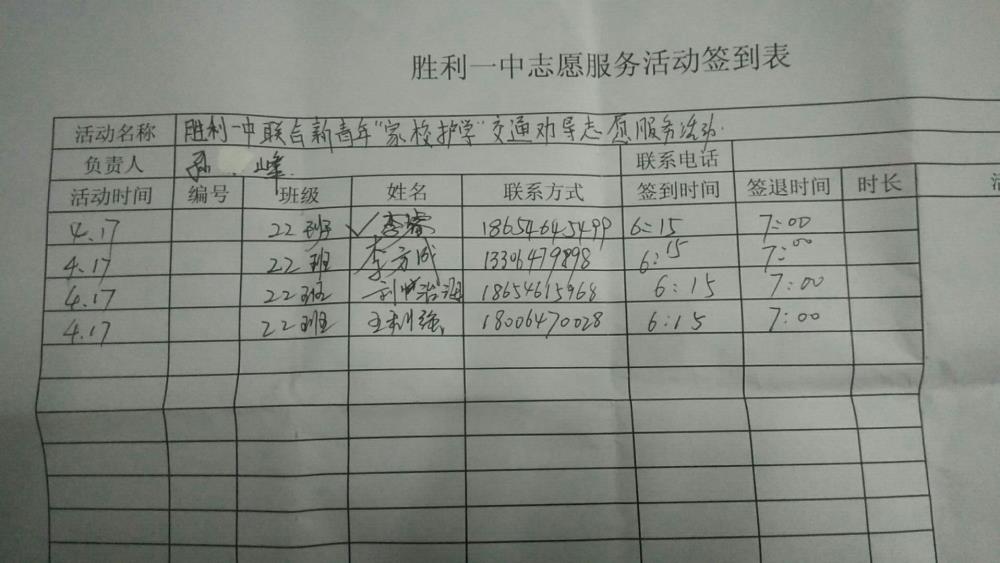 胜利一中志愿服务活动签到表
活动名称 胜利一中联合新青年“家校护学”交通劝导志愿服务活动.
负责人 孙 峰 联系电话
活动时间 编号 班级 姓名 联系方式 签到时间 签退时间 时长 活
4.17 22班 ✓李 18654645499 6:15 7:00
4.17 22班 李方成 13306479898 6:15 7:00
4.17 22班 刘 治海 18654615968 6:15 7:00
4.17 22班 王利强 18006470028 6:15 7:00